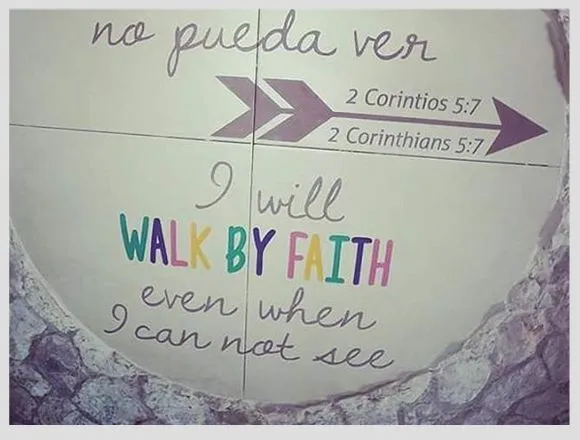 no pueda ver
2 Corintios 5:7
2 Corinthians 5:7
I will
WALK BY FAITH
even when
I can not see